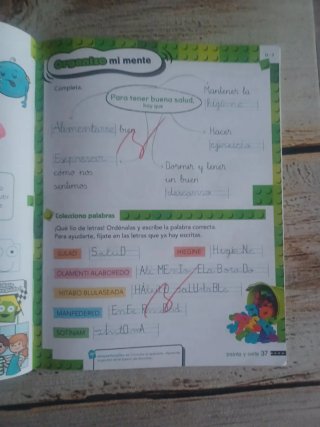 Organizo mi mente
Completa.
Para tener buena salud,
hay que
Mantener la
higiene
Alimentarse bien
Hacer
ejercicio
Expresar
cómo nos
sentimos
Dormir y tener
un buen
descanso
Colecciono palabras
¡Qué lío de letras! Ordénalas y escribe la palabra correcta.
Para ayudarte, fíjate en las letras que ya hay escritas.
SULAD
SaluD
HIEGINE
HigieNe
OLAMENTI ALABOREDO
Ali MEnto ElaBoraDo
HITABO BLULASEADA
HÁbito saludaBle
MANFEDERED
EnFeRmeDad
SOTINAM
37